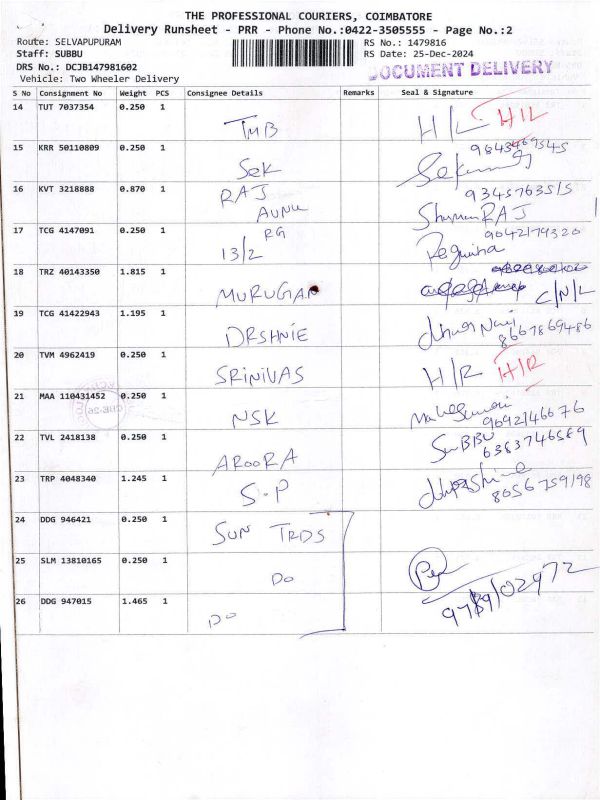 THE PROFESSIONAL COURIERS, COIMBATORE
Delivery Runsheet - PRR - Phone No.:0422-3505555 - Page No.:2
Route: SELVAPUPURAM RS No.: 1479816
Staff: SUBBU RS Date: 25-Dec-2024
DRS No.: DCJB147981602 DOCUMENT DELIVERY
Vehicle: Two Wheeler Delivery
S No Consignment No Weight PCS Consignee Details Remarks Seal & Signature
14 TUT 7037354 0.250 1 TMB H/L H/L
15 KRR 50110809 0.250 1 SeK
16 KVT 3218888 0.870 1 RAJ AUNU RAJ
17 TCG 4147091 0.250 1 RG 13/2 9042179320
18 TRZ 40143350 1.815 1 MURUGAN C/N/L
19 TCG 41422943 1.195 1 DRSHNIE 8667869486
20 TVM 4962419 0.250 1 SRINIVAS H/R H/R
21 MAA 110431452 0.250 1 NSK 9092146676
22 TVL 2418138 0.250 1 AROORA SUBBU 6383746589
23 TRP 4048340 1.245 1 S.P 8056759198
24 DDG 946421 0.250 1 SUN TRDS
25 SLM 13810165 0.250 1 DO
26 DDG 947015 1.465 1 DO 9789102972